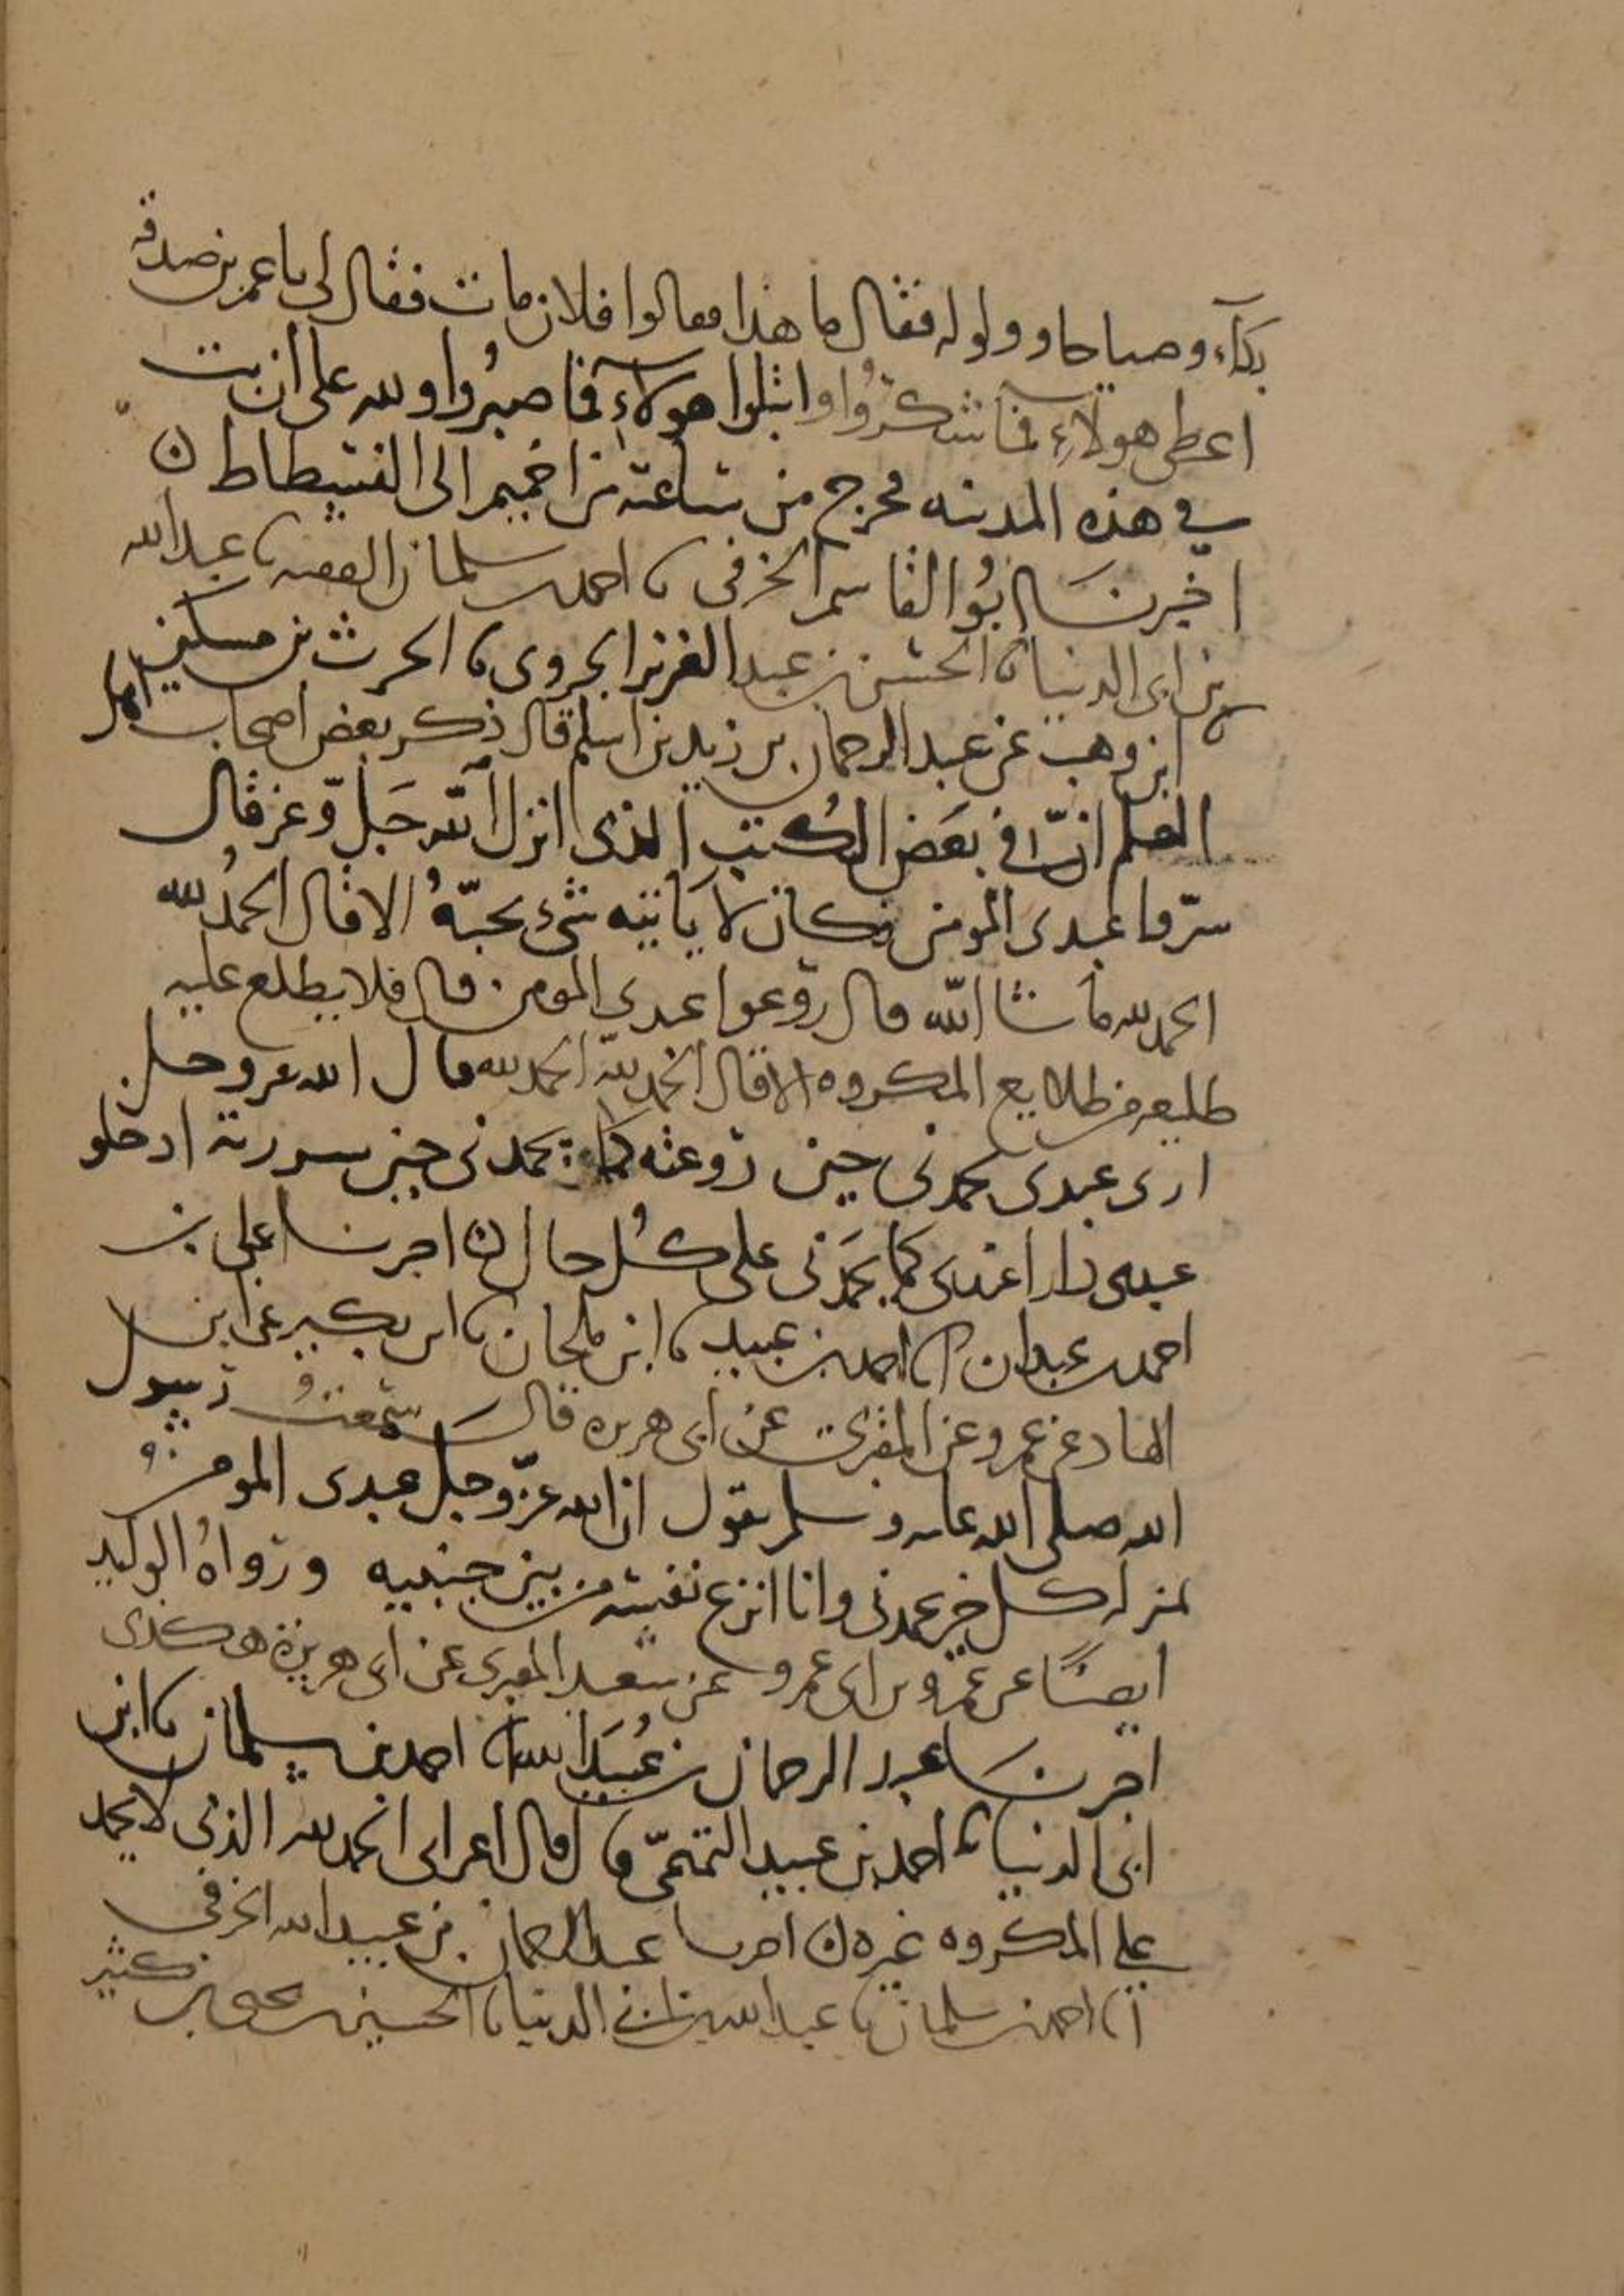 بكآء وصياحا وولوله فقال ما هذا فقالوا فلان مات فقال لي يا عمر بن صدقه
اعطى هولآء فما شكروا وابتلوا هولآء فما صبروا ولله علي ان بت
في هذه المدينه فخرج من ساعته من اخميم الى الفسطاط ن
اخبرنا ابو القاسم الخرقي نا احمد بن سلمان الفقيه نا عبد الله
بن ابي الدنيا نا الحسن بن عبد العزيز الجروي نا الحرث بن مسكين
نا ابن وهب عن عبد الرحمان بن زيد بن اسلم قال ذكر بعض اصحاب اهل
العلم ان في بعض الكتب الذي انزل الله جل وعز قال
سروا عبدي المومن فكان لا ياتيه شيء يحبه الا قال الحمد لله
الحمد لله ما شا الله قال روعوا عبدي المومن قال فلا يطلع عليه
طليعه من طلايع المكروه الا قال الحمد لله الحمد لله قال الله عز وجل
ارى عبدي يحمدني حين روعته كما يحمدني حين سررته ادخلو
عبدي دارا عندي كما يحمدني على كل حال ن اخبرنا علي بن
احمد بن عبدان انا احمد بن عبيد نا ابن ملحان نا ابن بكير عن ابن
الهاد عن عمرو عن المقبري عن ابي هريره قال سمعت رسول
الله صلى الله عليه وسلم يقول ان الله عز وجل عبدي المومن
بمنزله كل خير يحمدني وانا انزع نفسه من بين جنبيه ورواه الوليد
ايضا عن عمرو بن ابي عمرو عن سعيد المقبري عن ابي هريرة هكذى
اخبرنا عبد الرحمان بن عبيد الله نا احمد بن سلمان نا ابن
ابي الدنيا نا احمد بن عبيد التميمي قال قال اعرابي الحمد لله الذي لا يحمد
على المكروه غيره ن اخبرنا عبد الرحمان بن عبيد الله الخرقي
انا احمد بن سلمان نا عبد الله بن ابي الدنيا نا الحسين بن كثير